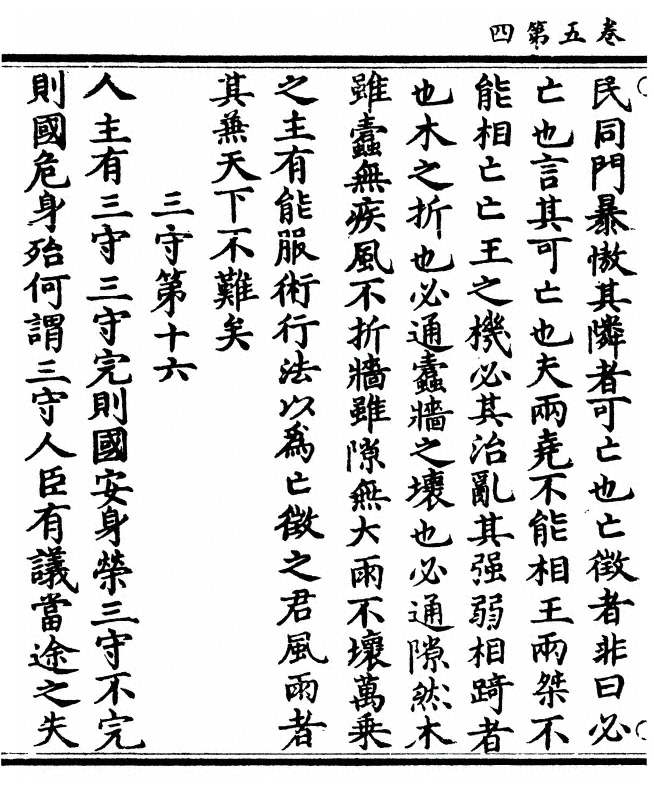 卷五第四
民同門暴慠其隣者可亡也亡徵者非曰必
亡也言其可亡也夫兩堯不能相王兩桀不
能相亡亡王之機必其治亂其强弱相踦者
也木之折也必通蠹牆之壞也必通隙然木
雖蠹無疾風不折牆雖隙無大雨不壞萬乘
之主有能服術行法以爲亡徵之君風雨者
其兼天下不難矣
三守第十六
人主有三守三守完則國安身榮三守不完
則國危身殆何謂三守人臣有議當途之失